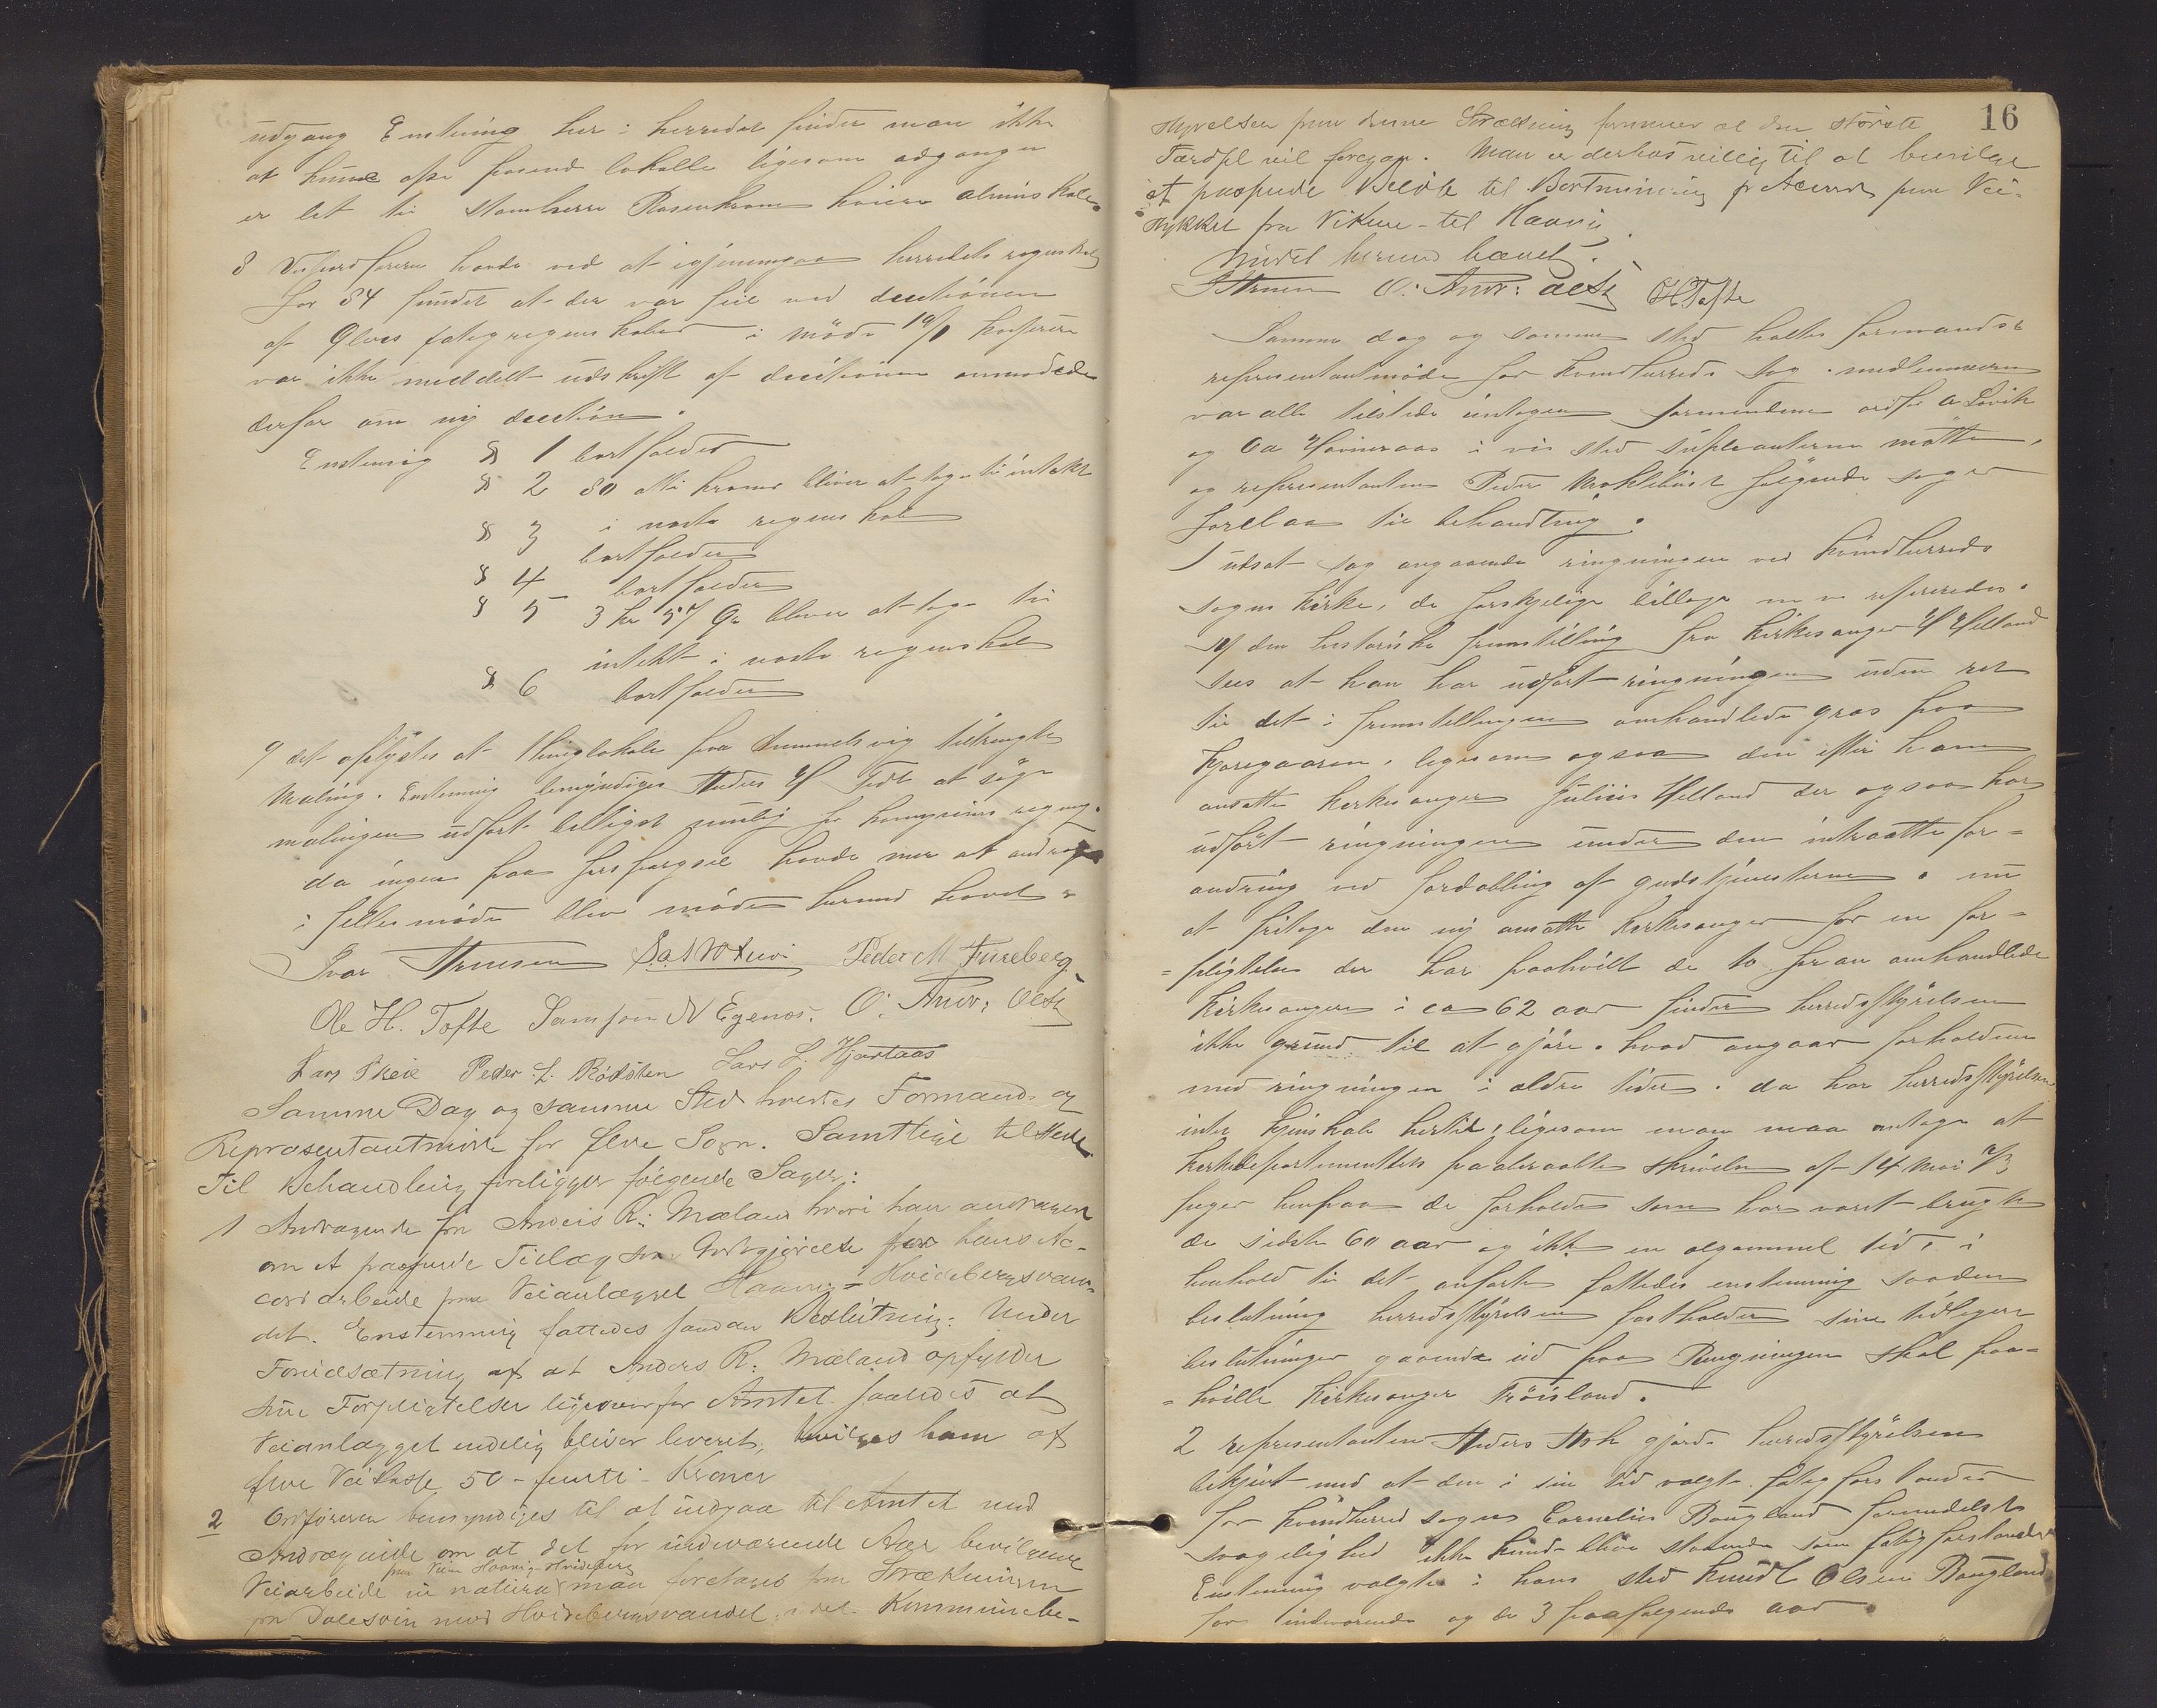 udgang Enstemig her i herredet finder man ikke
at kunne ose forend lokalle ligesom adgangen
er let til stamherre Rosenkrans høiere almuskole
8 Viseordføreren havde ved at igjennemgaa herredets regnskab
for 84 fundet at der var feil ved decitionen
af Ølves fategregnskaber i møde 19/1 kasserere
var ikke meddelt udskrift af decitionen anmodede
derfor om ny decition.
Enstemig § 1 bortfalder
§ 2 80 otti kroner bliver at tage til intekt
i nesta regnskab
§ 3 bortfalder
§ 4 bortfalder
§ 5 3 kr 57 Ør bliver at tage til
intekt i nesta regnskab
§ 6 bortfalder
9 det oplystes at thinglokale paa hummelsvig tiltrengte
Maling. Enstemig bemyndiges Anders H Tedt at søge
malingen udført billigst mulig for komunens regning.
da ingen paa forespørgsel havde mer at andrage
i felles møde blev møde hermed hævet.
Ivar Arnesen Peder M Fureberg
Ole H. Tofte Samson N Egenæs. O. Andr. Øeste
Lars Skeie Peder L. Rødsten Lars L. Hjortaas
Samme Dag og samme Sted holdtes Formands og
Repræsentantmøde for Ølve Sogn. Samtlige tilstede
Til Behandling foreligger følgende Sager:
1 Andragende fra Anders R. Mæland hvori han andrager
om et passende Tillæg som Godtgjørelse for hans Ac-
cordarbeide paa Veianlægget Haavig-Hvidebergsvan-
det. Enstemmig fattedes saadan Beslutning: Under
Forudsætning af at Anders R. Mæland opfylder
sine Forpligtelser ligeoverfor Amtet saaledes at
Veianlægget endelig bliver leveret, bevilges ham af
Ølve Veikasse 50 - femti - Kroner
2 Ordføreren bemyndiges til at indgaa til Amtet med
Andragende om at det for indeværende Aar bevilgede
paa Veien Haavig-Hvideberg
Veiarbeide in natura maa foretages paa Strækningen
fra Dalesvin mod Hvidebergsvandet, idet Kommunebe-
16
styrelsen paa denne Strækning formener at den største
Færdsel vil foregaa. Man er derhos villig til at bevilge
et passende Beløb til Bortminering pr Accord paa Vei-
stykket fra Vikene til Haavig.
Mødet hermed hævet.
I Arnesen O. Andr. Øeste OH Tofte
Samme dag og samme sted holtes formands &
representantmøde for kvindherreds sog. medlemmerne
var alle tilstede untagen formendene ordfø A Løvik
og Oa Hovineraas i vis sted supleanterne møtte,
og representanten Peder Møklebust følgende sager
forelaa til behandling.
1 udsat sag angaaende ringningen ved kvindherreds
sogns kirke, de forskjelige billage en va refereredes.
Af den historiske fremstilling fra kirkesanger H Helland
sees at han har udført ringningen uden ret
til det i fremstillingen omhandlede gras paa
Kjøregaaren, ligesom ogsaa den efter ham
ansatte kerkesanger Julius Helland der ogsaa har
udført ringningen under den intraatte for=
andring ved fordobling af gudstjenesterne. nu
at fritage den ny ansatte kerkesanger for en for=
=pligtelse der har paahvilt de to foran omhandlede
Kirkesangere i ca 62 aar finder herredsstyrelsen
ikke grund til at gjøre. hvad angaar forholdene
med ringningen i eldre tider. da har herredsstyrelsen
intet kjenskab hertil, ligesom man maa antage at
kerkedepartementets paaberaabte skrivelse af 14 Mai 73
seger henpaa de forholde som har varet brugte
de sidste 60 aar og ikke en olgammel tid, i
henhold til det anførte fattedes enstemmig saadan
beslutning herredsstyrelsen fastholder sine tidligere
beslutninger gaaende ud paa Ringningen skal paa=
=hville kirkesanger Frøisland.
2 representanten Anders Ask gjorde herredsstyrelsen
bekjent med at den i sin tid valgte fatigforstander
for kvindherred sogn Cornelius Bougland formedelst
svagelighed ikke kunde blive staaende som fatigforstander
Enstemig valgtes i hans sted Knudt Olsen Bougland
for indeværende og de 3 paafølgende aar